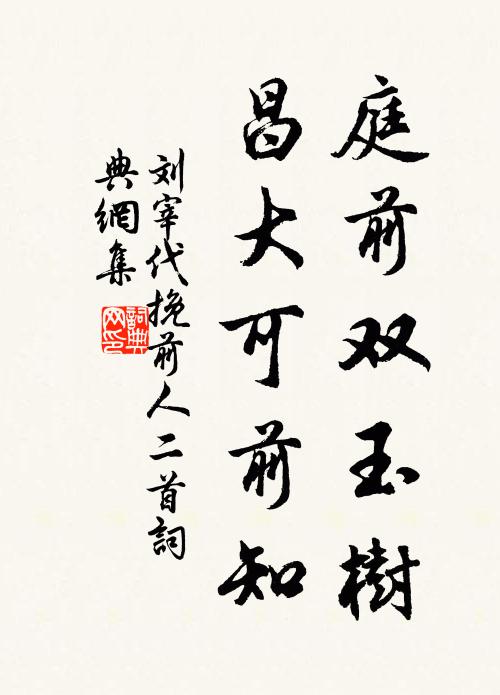 庭前双玉樹
昌大可前知
刘宰代挽前人二首詞
典網集
詞典网印